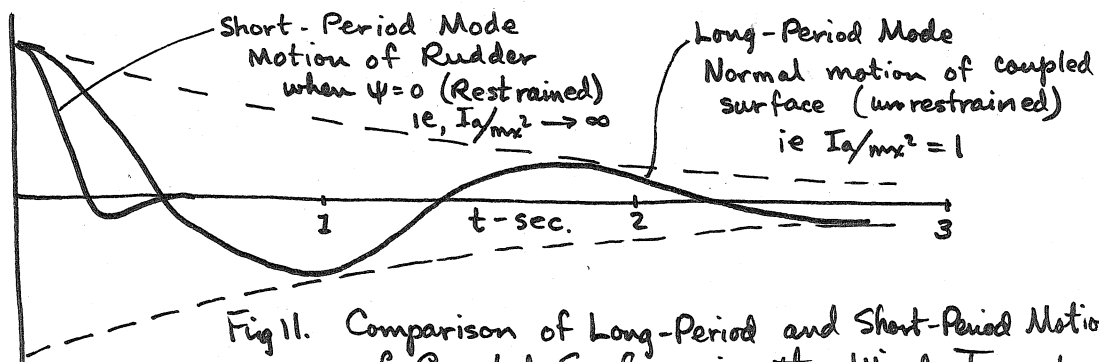 Short-Period Mode
Motion of Rudder
when ψ=0 (Restrained)
ie, Ia/mx² → ∞
Long-Period Mode
Normal motion of coupled
surface (unrestrained)
ie Ia/mx² = 1
1
t-sec.
2
3
Fig 11. Comparison of Long-Period and Short-Period Motio